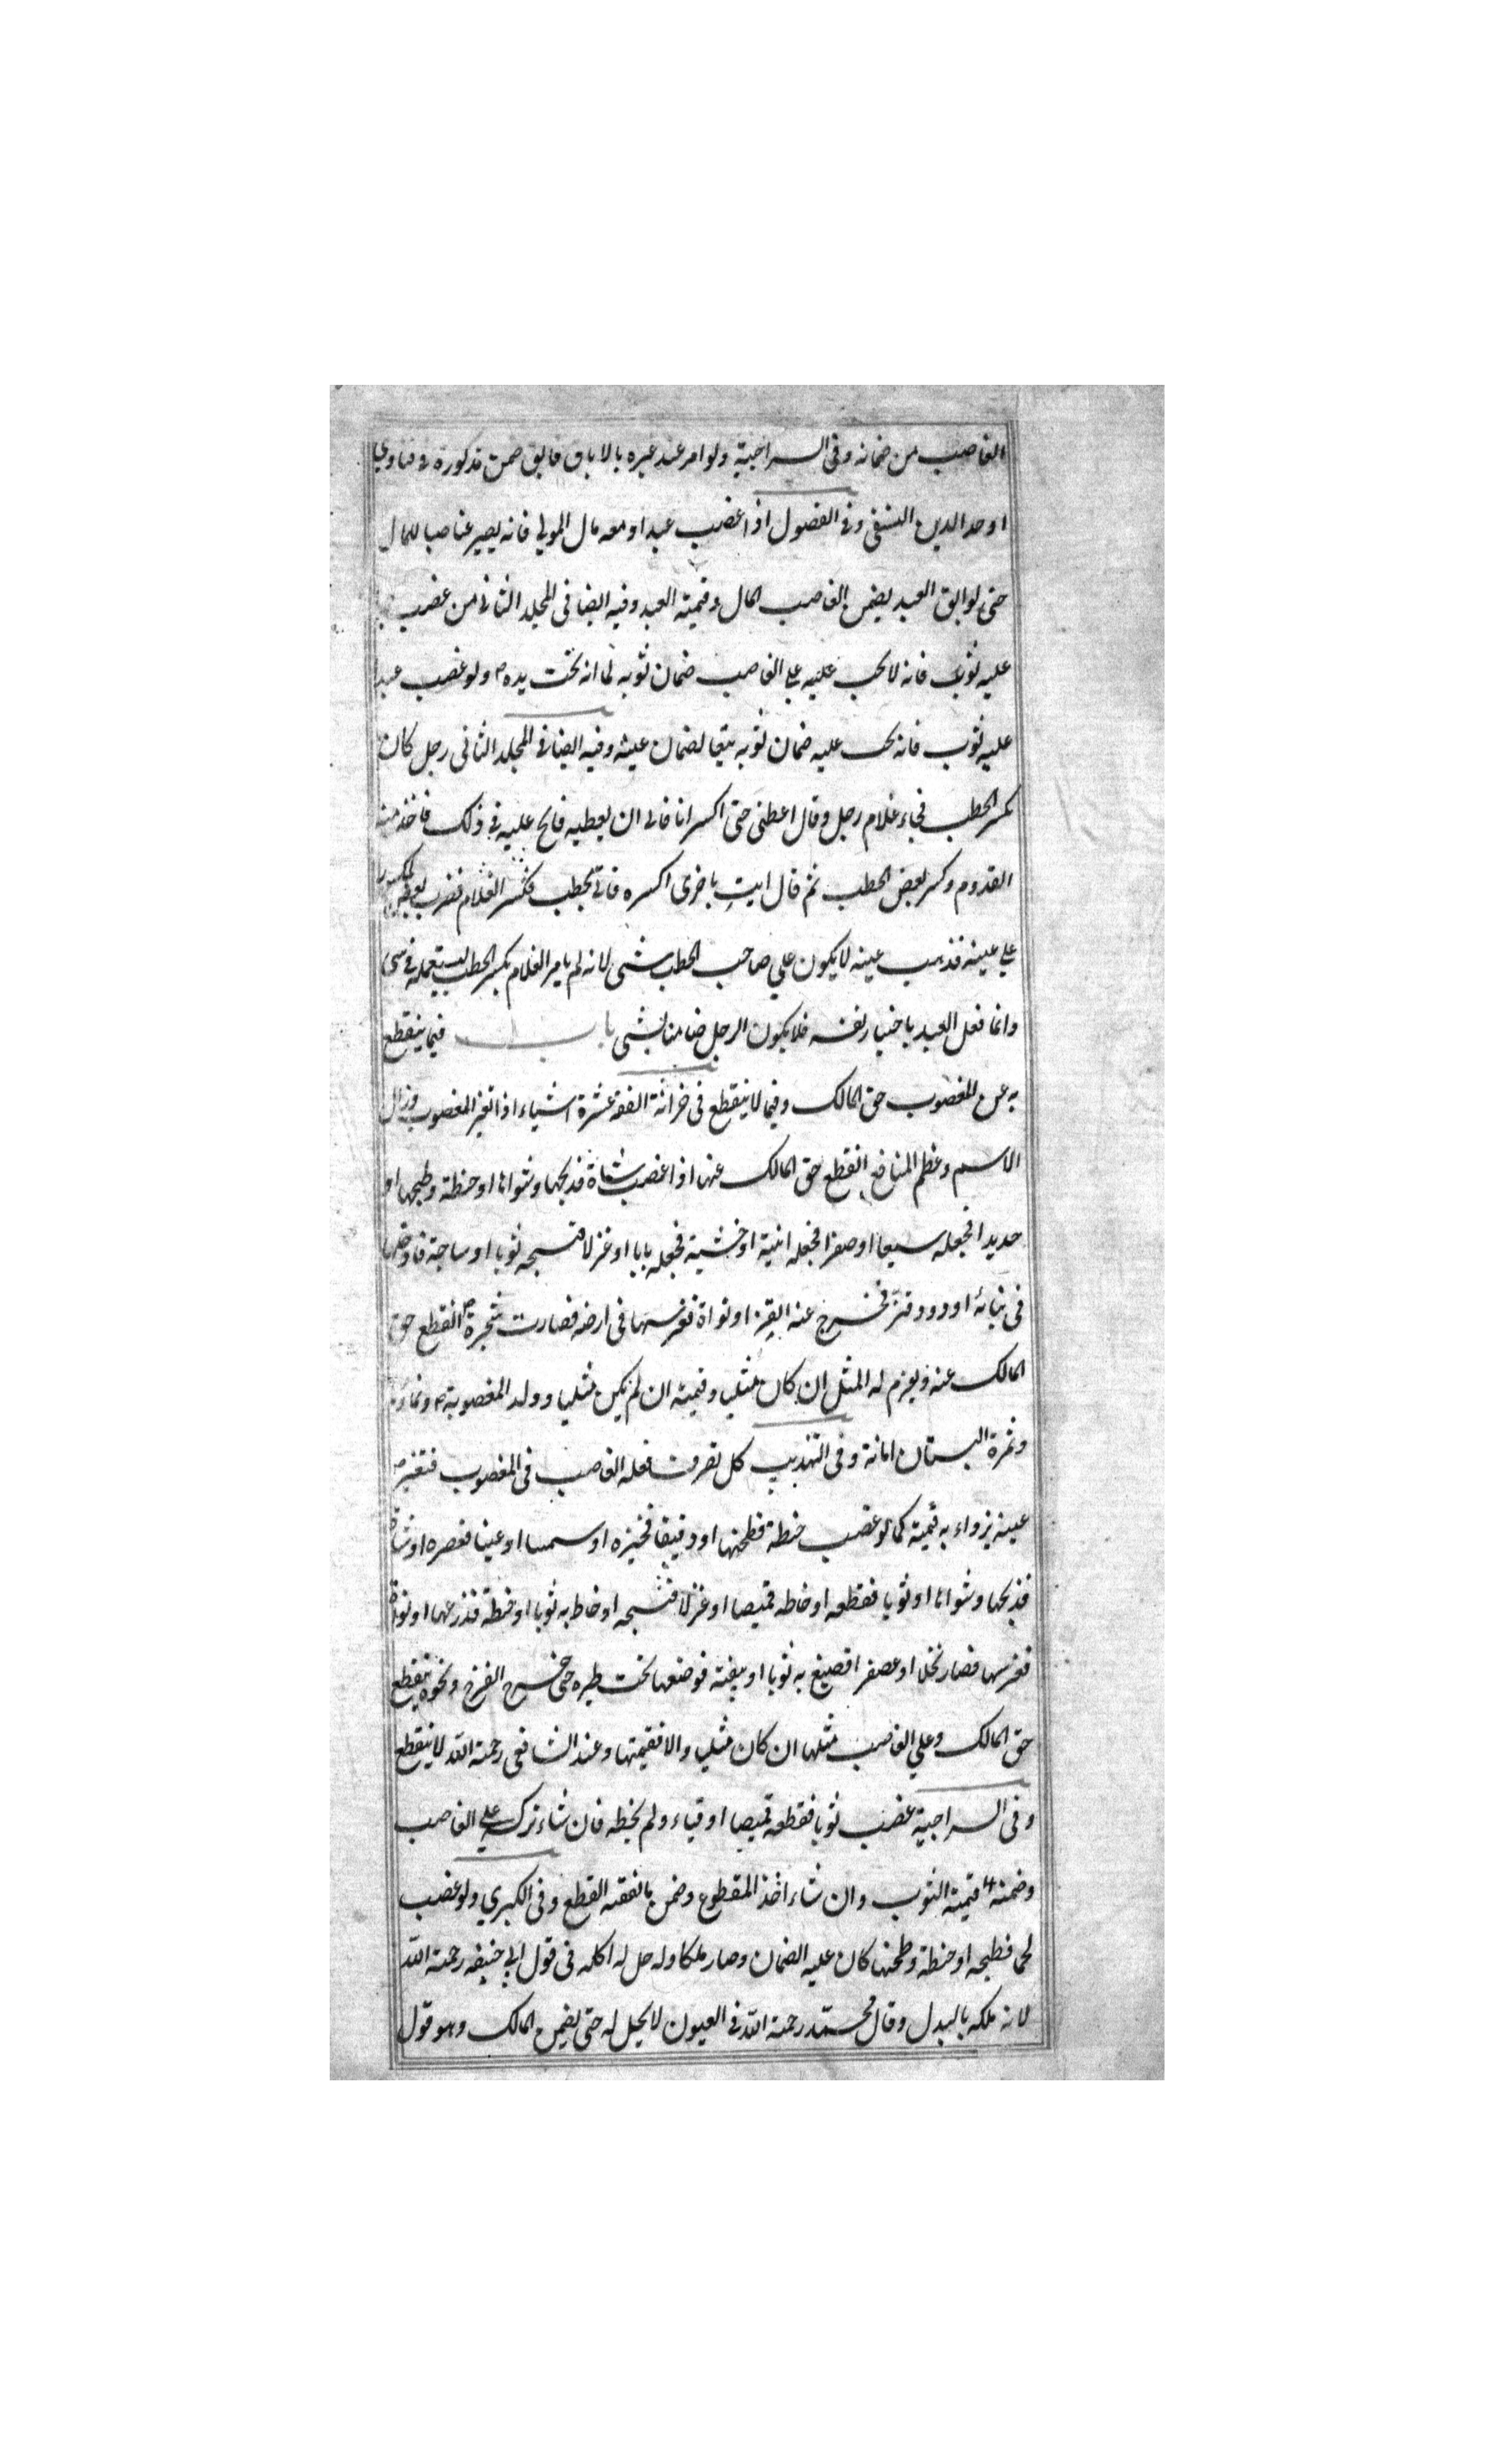 الغاصب من ضمانه وفى السراجية ولو امر عبد غيره بالاباق فابق ضمن مذكورة فى فتاوي
اوحد الدين النسفى وفى الفصول اذا غصب عبدا ومعه مال المولي فانه يصير غاصبا للمال
حتى لو ابق العبد يضمن الغاصب المال وقيمته العبد وفيه ايضا فى المجلد الثانى من غصب
عليه ثوب فانه لا يجب عليه علي الغاصب ضمان ثوبه لما انه تحت يده ولو غصب عبدا
عليه ثوب فانه يجب عليه ضمان ثوبه تبعا لضمان عينه وفيه ايضا فى المجلد الثانى رجل كان
يكسر الحطب فجاء غلام رجل وقال اعطنى حتى اكسر انا فابى ان يعطيه فالح عليه فى ذلك فاخذ منه
القدوم وكسر بعض الحطب ثم قال ايت باخرى اكسره فاتى بحطب فكسر الغلام فضرب بعض المكسور
علي عينه فذهب عينه لا يكون علي صاحب الحطب شىء لانه لم يامر الغلام بكسر الحطب ليستعمله فى شى
وانما فعل العبد باختيار نفسه فلا يكون الرجل ضامنا لشى باب فيما ينقطع
به عن المغصوب حق المالك وفيما لا ينقطع فى خزانة الفقه عشرة اشياء اذا تغير المغصوب وزال
الاسم وعظم المنافع انقطع حق المالك عنها اذا غصب شاة فذبحها وشواها او حنطة وطبخها او
حديدا فجعله سيفا او صفرا فجعله انية او خشبة فجعله بابا او غزلا فنسجه ثوبا او ساجة فادخلها
فى بنائه او دود قز فخرج عنه القز او نواة فغرسها فى ارضه فصارت شجرة انقطع حق
المالك عنه ويغرم له المثل ان كان مثليا وقيمته ان لم يكن مثليا وولد المغصوبة ونماؤه
وثمرة البستان امانة وفى التهذيب كل تصرف فعله الغاصب فى المغصوب فتغير
عينه يزداد به قيمته كما لو غصب حنطة فطحنها او دقيقا فخبزه او سمسما او عنبا فعصره او شاة
فذبحها وشواها او ثوبا فقطعه او خاطه قميصا او غزلا فنسجه او خاط به ثوبا او حنطة فزرعها او نواة
فغرسها فصار نخلا او عصفرا فصبغ به ثوبا او بيضة فوضعها تحت طيره حتى خرج الفرخ ونحوه ينقطع
حق المالك وعلي الغاصب مثلها ان كان مثليا والا فقيمتها وعند الشافعى رحمة الله لا ينقطع
وفى السراجية غصب ثوبا فقطعه قميصا او قباء ولم يخطه فان شاء تركه علي الغاصب
وضمنه قيمة الثوب وان شاء اخذ المقطوع وضمن ما نقصه القطع وفى الكبري ولو غصب
لحما فطبخه او حنطة وطحنها كان عليه الضمان وصار ملكا وله حل له اكله فى قول ابي حنيفه رحمة الله
لانه ملكه بالبدل وقال محمد رحمة الله فى العيون لا يحل له حتى يضمن المالك وهو قول